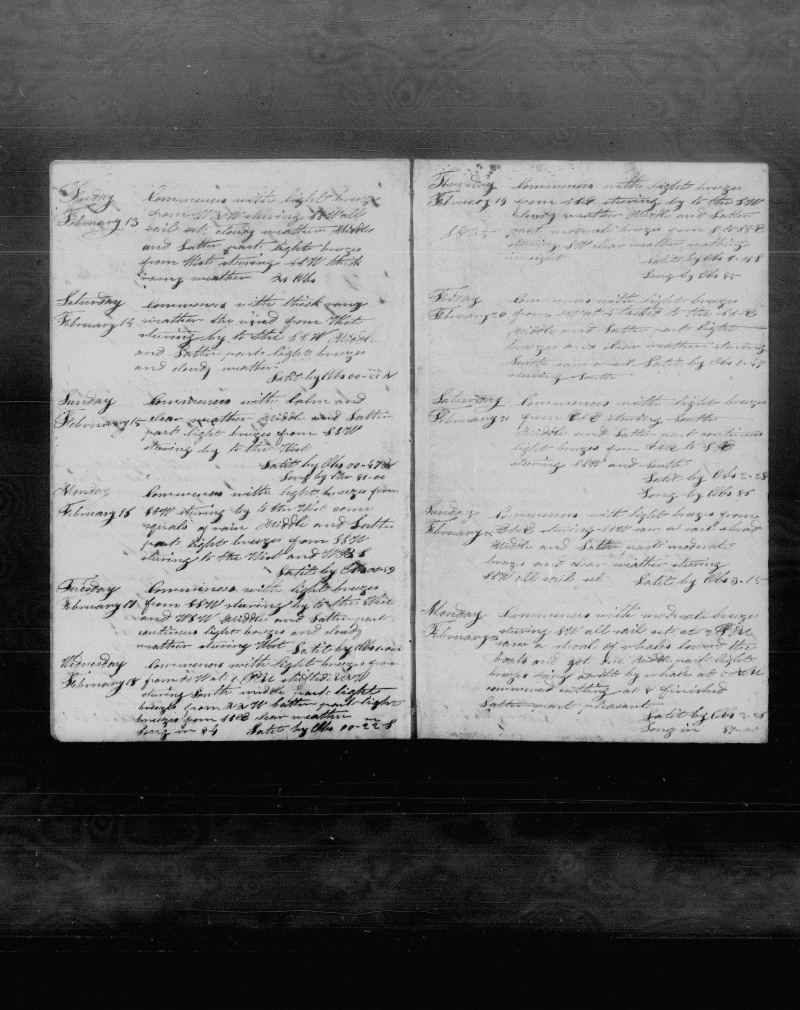 Friday Commences with light breezes
February 13 from WNW stearing SW all
sail set cloudy weather Middle
and Latter part lights breezes
from West stearing SSW thick
rainy weather No Obs
Saturday commences with thick rainy
February 14 weather the wind from West
stearing by to the SSW Middle
and Latter part lights breezes
and cloudy weather
Latit by Obs 00-21 N
Sunday Commences with Calm and
February 15 clear weather Middle and Latter
part light breezes from SSW
stearing by to the West
Latit by Obs 00-47 N
Long by Chr 81-00
Monday Commences with lights breezes from
February 16 SSW stearing by to the West some
squals of rain Middle and Latter
part lights breezes from SSW
stearing to the West and
Latit by Obs 00-59
Tuesday Commences with lights breezes
February 17 from SSW stearing by to the West
and WSW Middle and Latter part
continues light breezes and cloudy
weather stearing West Latit by Obs
Wednesday Commences with lights breezes from
February 18 from SSW at PM shifted
stearing South middle part light
breezes from latter part light
breezes from SSE clear weather
Long in 84 Latit by Obs 00-22 S
Thursday Commences with light breezes
February 19 from SSE stearing by to the SW
1835 cloudy weather Middle and Latter
part moderate breezes from S to SSE
stearing SW clear weather nothing
in sight Latit by Obs 1-48
Long by Obs 85
Friday Commences with light breezes
February 20 from tacked to the
Middle and Latter part light
breezes and clear weather stearing
South saw a sail Latit by Obs
stearing South
Saturday Commences with light breezes
February 21 from stearing South
Middle and Latter part continues
light breezes from to
stearing SW and South
Latit by Obs 2-28
Long by Obs 85
Sunday Commences with light breezes from
February 22 stearing SSW saw a sail ahead
Middle and Latter part moderate
breezes and clear weather stearing
SSW all sail set Latit by Obs 3-15
Monday Commences with moderate breezes
February 23 stearing SW all sail set at 2 PM
saw a shoal of whales lowerd the
boats and got Middle part light
breezes laying a by whale at
commenced cutting at 8 finished
Latter part pleasant
Latit by Obs
Long in